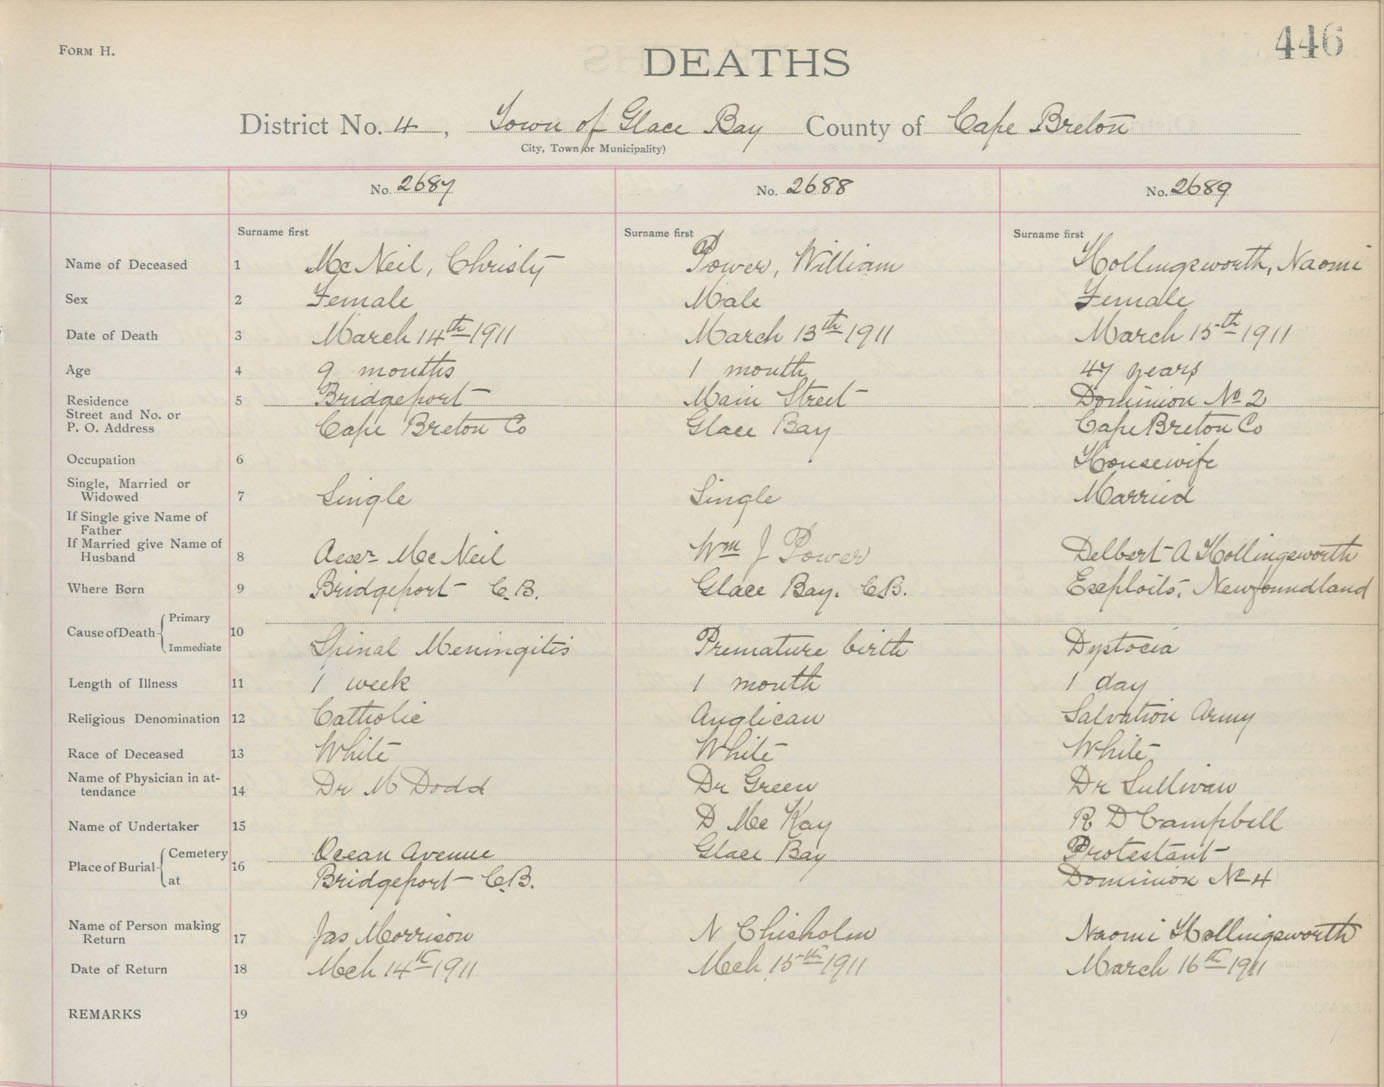 FORM H.
446
DEATHS
District No. 4, Town of Glace Bay County of Cape Breton
City, Town or Municipality)
No. 2687 No. 2688 No. 2689
Surname first Surname first Surname first
Name of Deceased 1 McNeil, Christy Power, William Hollingsworth, Naomi
Sex 2 Female Male Female
Date of Death 3 March 14th 1911 March 13th 1911 March 15th 1911
Age 4 9 months 1 month 47 years
Residence 5 Bridgeport Main Street Dominion No 2
Street and No. or
P. O. Address Cape Breton Co Glace Bay Cape Breton Co
Occupation 6 Housewife
Single, Married or
Widowed 7 Single Single Married
If Single give Name of
Father
If Married give Name of
Husband 8 McNeil Wm J Power Delbert A Hollingsworth
Where Born 9 Bridgeport C.B. Glace Bay. C.B. Exploits, Newfoundland
Cause of Death Primary
10
Immediate Spinal Meningitis Premature birth Dystocia
Length of Illness 11 1 week 1 month 1 day
Religious Denomination 12 Catholic Anglican Salvation Army
Race of Deceased 13 White White White
Name of Physician in at-
tendance 14 Dr M Dodd Dr Green Dr Sullivan
Name of Undertaker 15 D McKay R D Campbell
Place of Burial Cemetery 16 Ocean Avenue Glace Bay Protestant
at Bridgeport C.B. Dominion No 4
Name of Person making
Return 17 Jas Morrison N Chisholm Naomi Hollingsworth
Date of Return 18 Mch 14th 1911 Mch 15th 1911 March 16th 1911
REMARKS 19